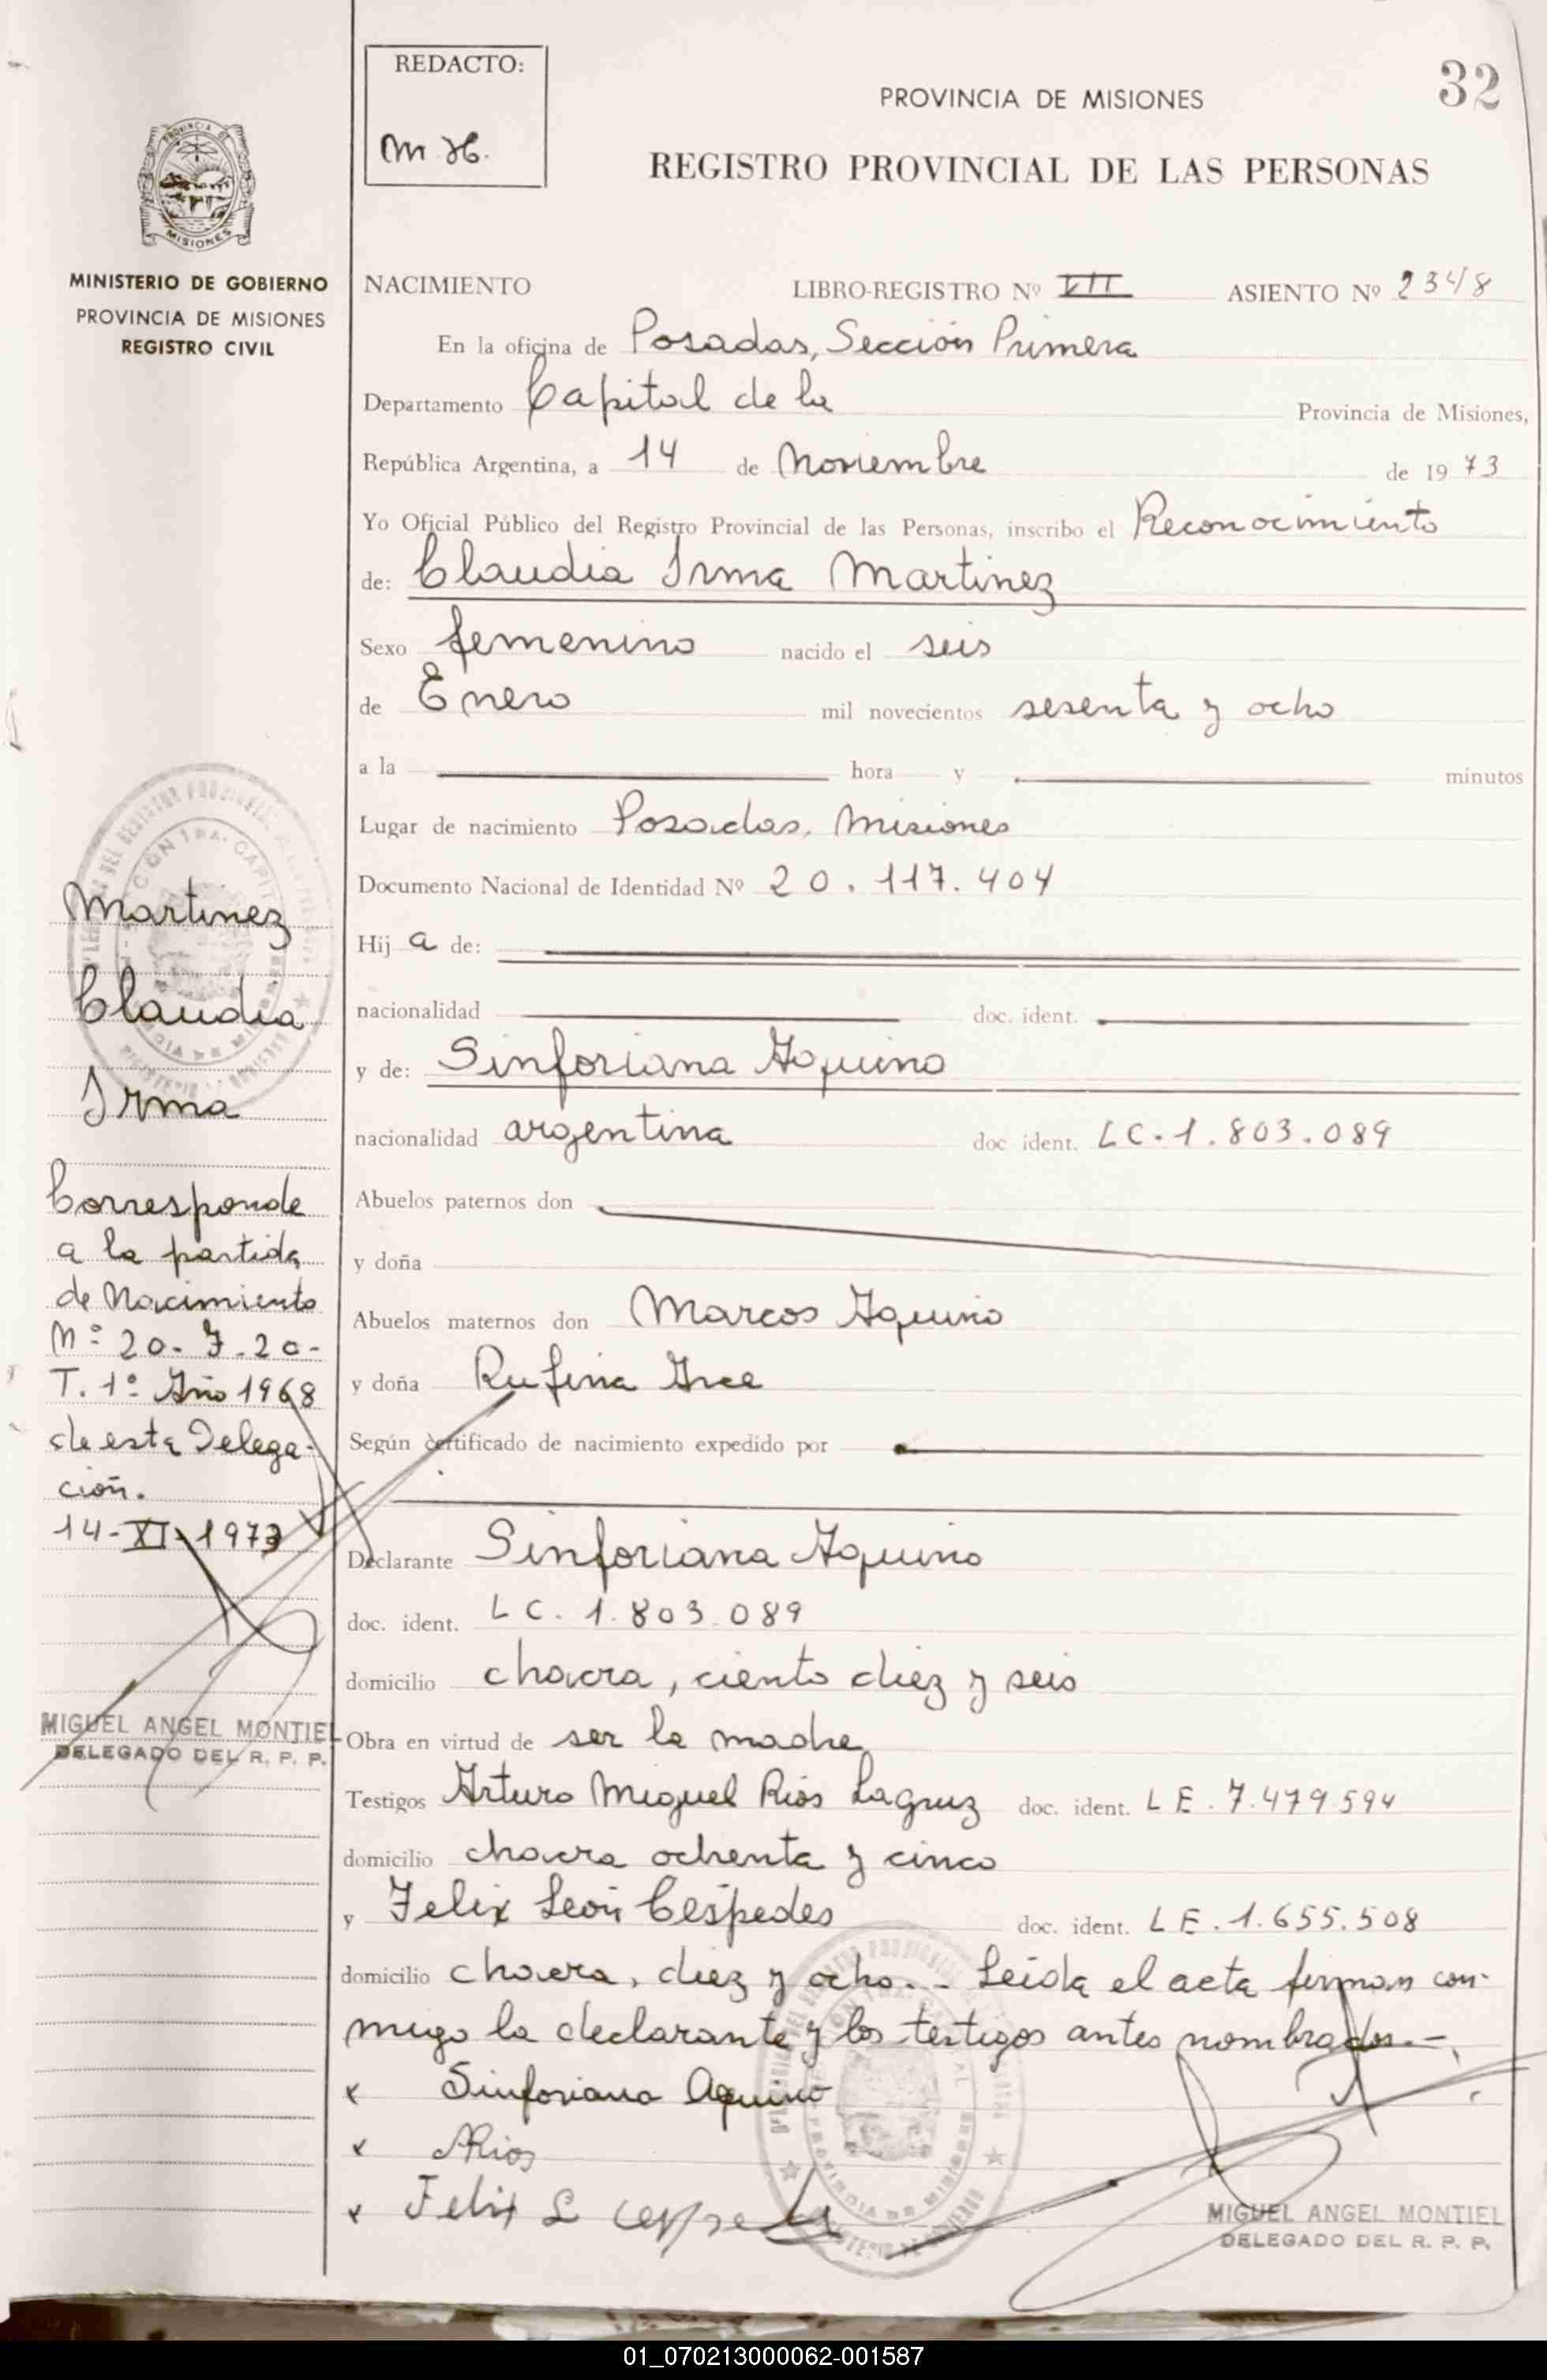 32
REDACTO:
M. H.
PROVINCIA DE MISIONES
REGISTRO PROVINCIAL DE LAS PERSONAS
PROVINCIA DE
MISIONES
MINISTERIO DE GOBIERNO
PROVINCIA DE MISIONES
REGISTRO CIVIL
NACIMIENTO LIBRO-REGISTRO Nº VII ASIENTO Nº 2348
En la oficina de Posadas, Sección Primera
Departamento Capital de la Provincia de Misiones,
República Argentina, a 14 de Noviembre de 1973
Yo Oficial Público del Registro Provincial de las Personas, inscribo el Reconocimiento
de: Claudia Irma Martinez
Sexo femenino nacido el seis
de Enero mil novecientos sesenta y ocho
a la hora y minutos
Lugar de nacimiento Posadas, Misiones
Documento Nacional de Identidad Nº 20.117.404
Hij a de:
nacionalidad doc. ident.
y de: Sinforiana Aquino
nacionalidad argentina doc ident. LC. 1.803.089
Abuelos paternos don
y doña
Abuelos maternos don Marcos Aquino
y doña Rufina Arce
Según certificado de nacimiento expedido por
Declarante Sinforiana Aquino
doc. ident. LC. 1.803.089
domicilio chacra, ciento diez y seis
Obra en virtud de ser la madre
Testigos Arturo Miguel Rios Lagruz doc. ident. LE. 7.479.594
domicilio chacra ochenta y cinco
y Felix León Cespedes doc. ident. LE. 1.655.508
domicilio chacra, diez y ocho.- Leida el acta firman con-
migo la declarante y los testigos antes nombrados.-
x Sinforiana Aquino
x ARios
x Felix L Cespedes
MIGUEL ANGEL MONTIEL
DELEGADO DEL R. P. P.
Martinez
Claudia
Irma
Corresponde
a la partida
de Nacimiento
Nº 20- F. 20-
T. 1º Año 1968
de esta Delega-
ción.
14-XI-1973
MIGUEL ANGEL MONTIEL
DELEGADO DEL R. P. P.
01_070213000062-001587